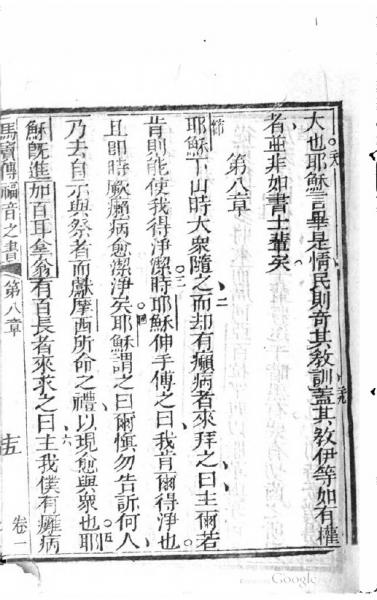 大也耶穌言畢是情民則奇其教訓蓋其教伊等如有權
者並非如書士輩矣
第八章
耶穌下山時大衆隨之而却有癩病者來拜之曰主爾若
肯則能使我得淨潔時耶穌伸手傅之曰我肯爾得淨也
且卽時厥癩病愈潔淨矣耶穌謂之曰爾慎勿告訴何人
乃去自示與祭者而獻摩西所命之禮以現愈與衆也耶
穌旣進加百耳拿翁有百長者來求之曰主我僕有癱病
馬竇傳福音之書
第八章
十五
卷一
Google